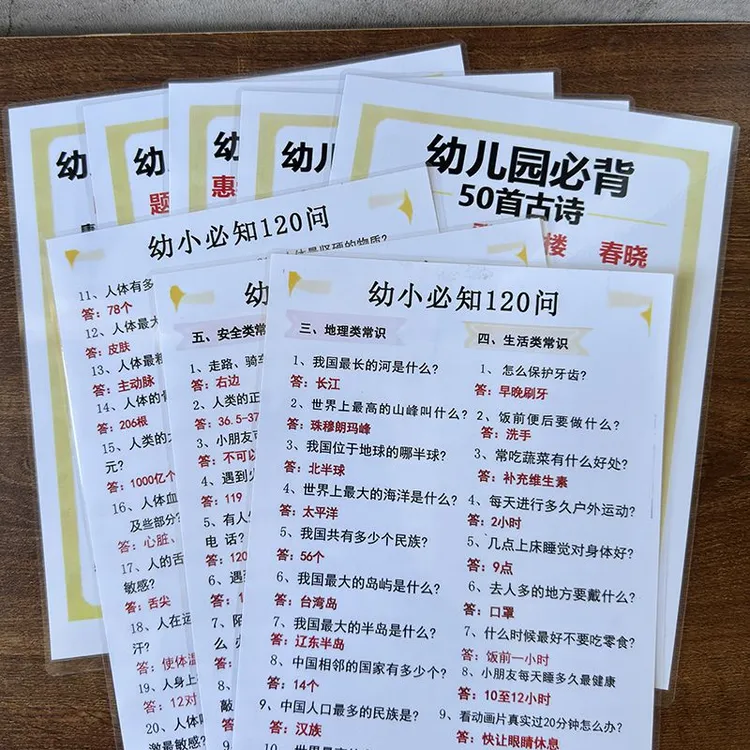 幼
幼
幼
幼儿
幼儿园必背
50首古诗
题
惠
楼 春晓
幼小必知120问
11、人体有多
答：78个
12、人体最大
答：皮肤
13、人体最粗
答：主动脉
14、人体的骨
答：206根
15、人类的大
元？
答：1000亿个
16、人体血
及些部分？
答：心脏、
17、人的舌
敏感？
答：舌尖
18、人在运
汗？
答：使体温
19、人身上
答：12对
20、人体
激最敏感？
幼
五、安全类常
1、走路、骑车
答：右边
2、人类的正
答：36.5-37
3、小朋友可
答：不可以
4、遇到火
答：119
5、有人
电话？
答：120
6、遇到
答：1
7、陌
么办
答：
8、
敲
幼小必知120问
三、地理类常识
1、我国最长的河是什么？
答：长江
2、世界上最高的山峰叫什么？
答：珠穆朗玛峰
3、我国位于地球的哪半球？
答：北半球
4、世界上最大的海洋是什么？
答：太平洋
5、我国共有多少个民族？
答：56个
6、我国最大的岛屿是什么？
答：台湾岛
7、我国最大的半岛是什么？
答：辽东半岛
8、中国相邻的国家有多少个？
答：14个
9、中国人口最多的民族是？
答：汉族
四、生活类常识
1、怎么保护牙齿？
答：早晚刷牙
2、饭前便后要做什么？
答：洗手
3、常吃蔬菜有什么好处？
答：补充维生素
4、每天进行多久户外运动？
答：2小时
5、几点上床睡觉对身体好？
答：9点
6、去人多的地方要戴什么？
答：口罩
7、什么时候最好不要吃零食？
答：饭前一小时
8、小朋友每天睡多久最健康
答：10至12小时
9、看动画片真实过20分钟怎么办？
答：快让眼睛休息